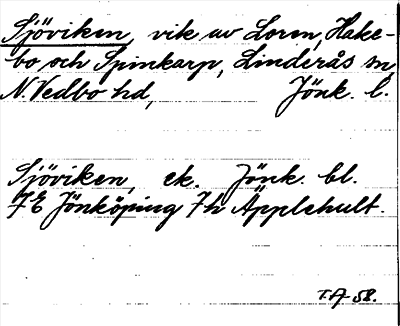 Sjöviken, vik av Loren, Hake-
bo och Spinkarp, Linderås sn,
N. Vedbo hd, Jönk. l.
Sjöviken, ek. Jönk. bl.
7E Jönköping 7h Äpplehult.
T.A. 58.